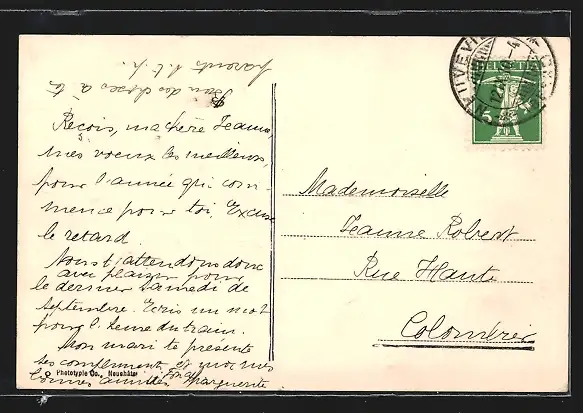 Reçois, ma chère Jeanne,
mes voeux les meilleurs,
pour l'année qui com-
mence pour toi. Excuse
le retard.
Nous t'attendons donc
avec plaisir pour
le dernier samedi de
septembre. Ecris un mot
pour l'heure du train.
Mon mari te présente
ses compliments et moi mes
bonnes amitiés Marguerite
Bien des choses à tes
parents s.t.p.
Phototypie Co., Neuchâtel
HELVETIA
5
NEUVEVILLE
Mademoiselle
Jeanne Robert
Rue Haute
Colombier